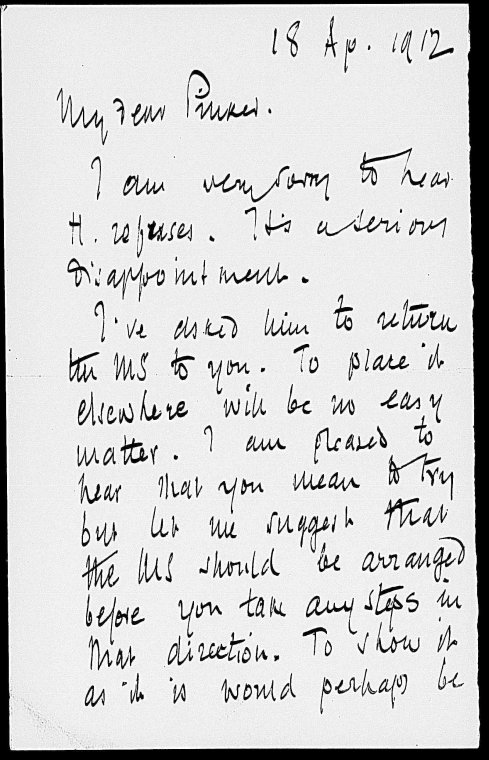 18 Ap. 1912
My dear Pinker.
I am very sorry to hear
H. refuses. It's a serious
disappointment.
I've asked him to return
the MS to you. To place it
elsewhere will be no easy
matter. I am pleased to
hear that you mean to try
but let me suggest that
the MS should be arranged
before you take any steps in
that direction. To show it
as it is would perhaps be